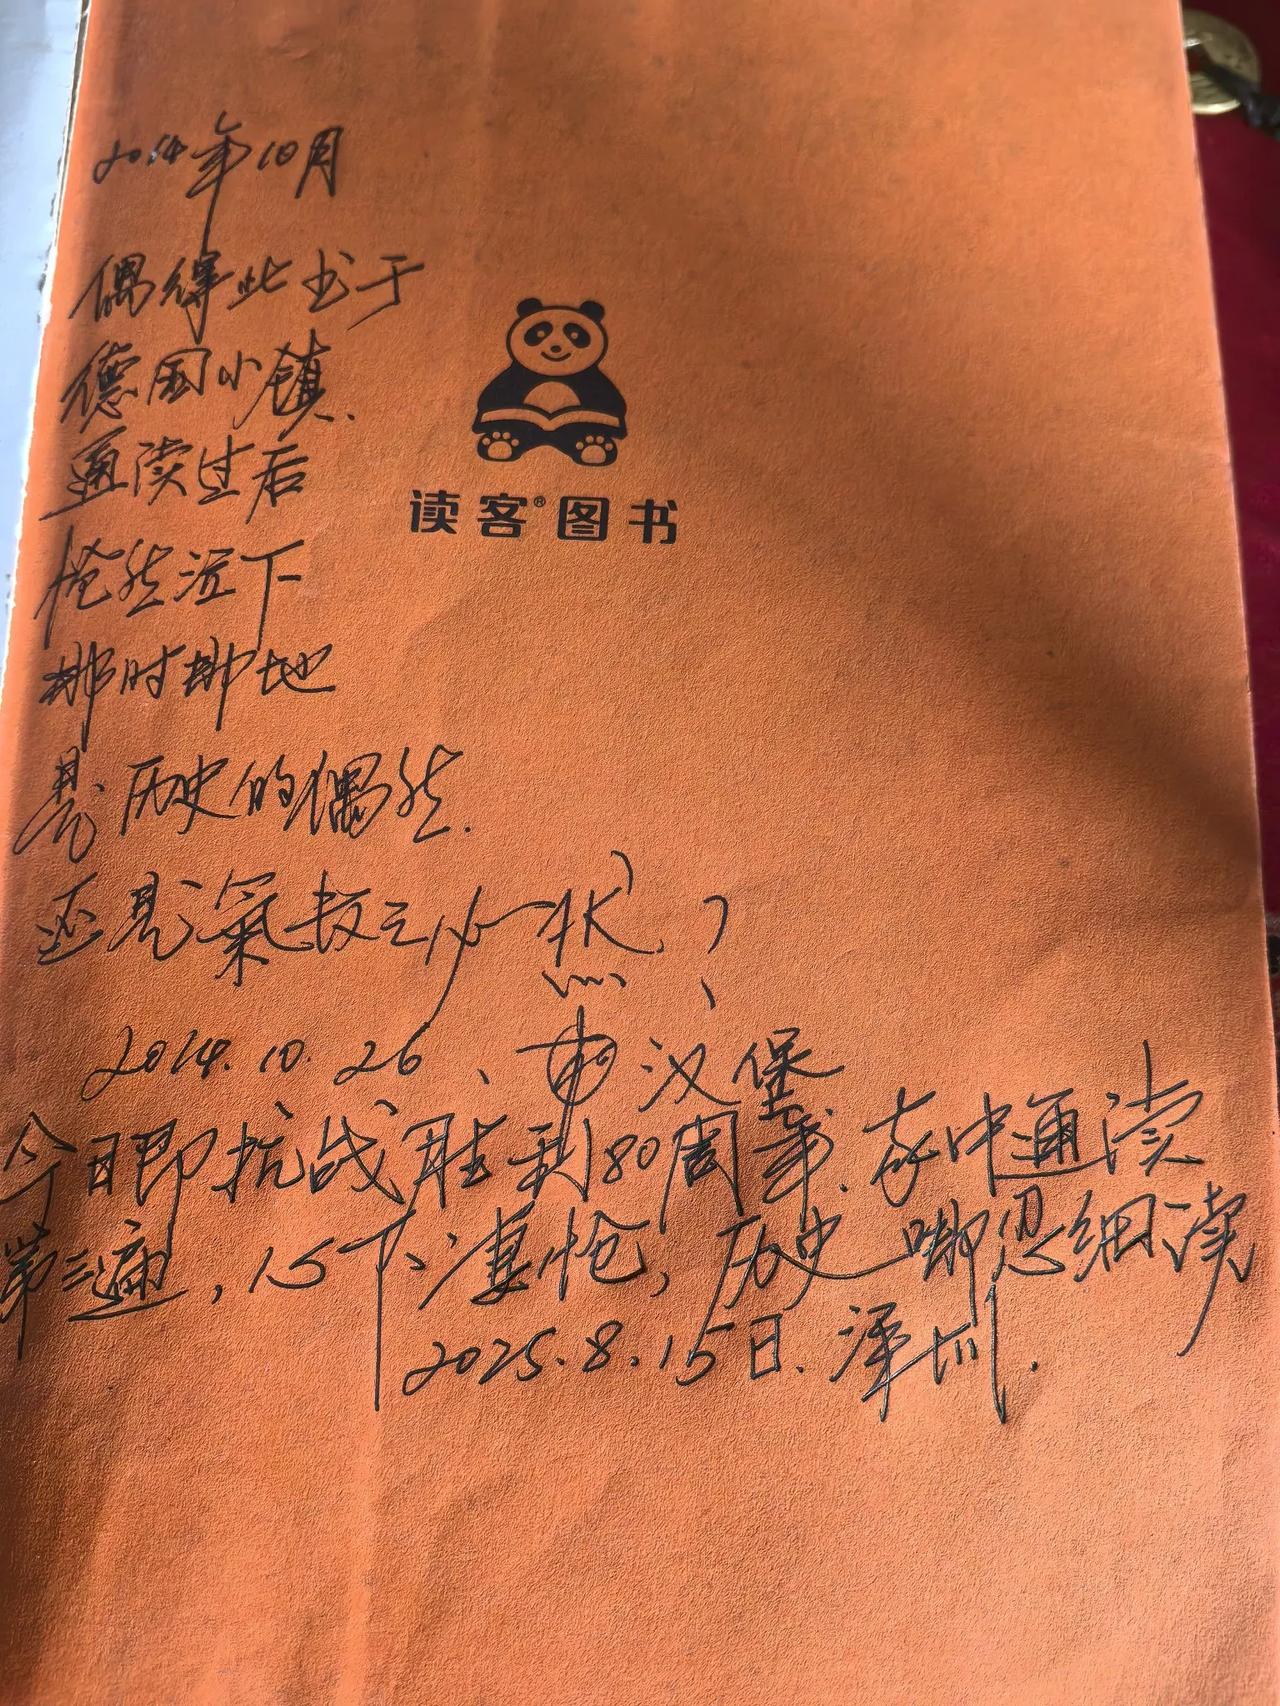 2014年10月
偶得此书于
德国小镇.
通读过后
怆然泪下
那时那地
是历史的偶然.
还是氣数之必然、?
2014.10.26、汉堡
今日即抗战胜利80周年.在中通读
第三遍,心下凄怆,历史哪忍细读
2025.8.15日.深圳.
读客®图书